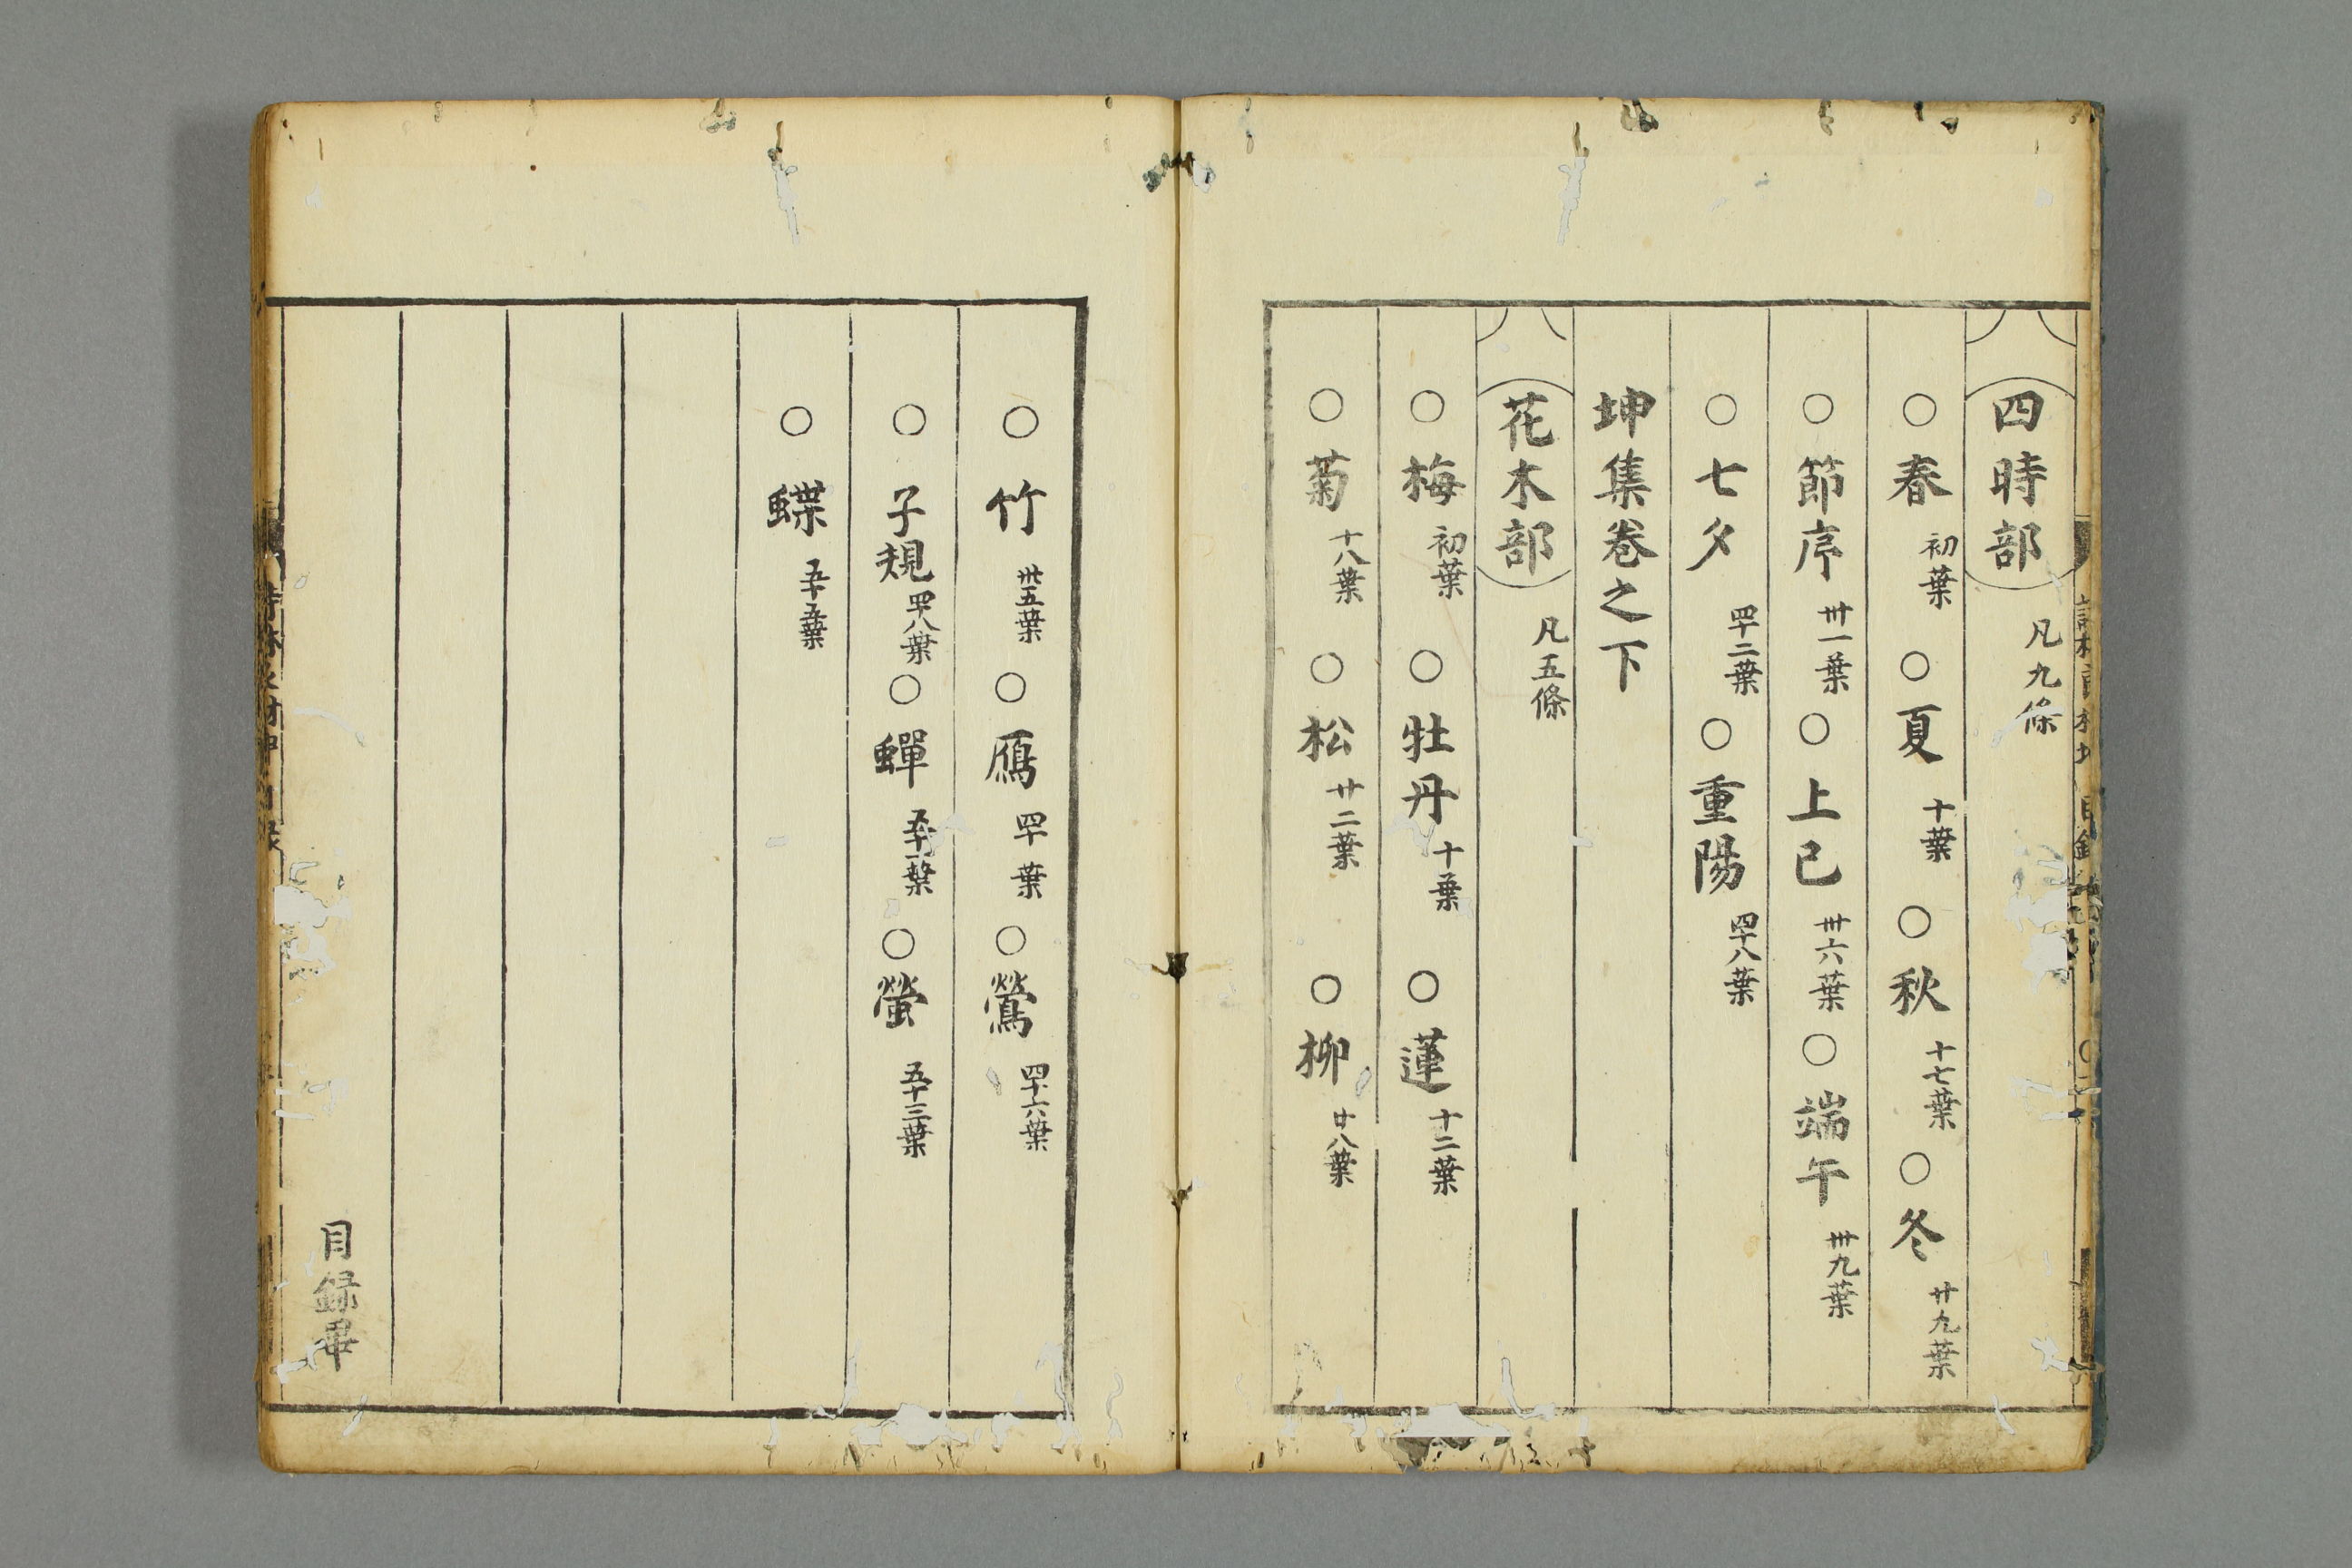 四時部 凡九條
○春 初葉 ○夏 十葉 ○秋 十七葉 ○冬 廿九葉
○節序 卅一葉 ○上巳 卅六葉 ○端午 卅九葉
○七夕 四十二葉 ○重陽 四十八葉
坤集卷之下
花木部 凡五條
○梅 初葉 ○牡丹 十葉 ○蓮 十二葉
○菊 十八葉 ○松 廿二葉 ○柳 廿八葉
○竹 卅五葉 ○鴈 四十葉 ○鶯 四十六葉
○子規 四十八葉 ○蟬 五十一葉 ○螢 五十三葉
○蝶 五十五葉
目録畢